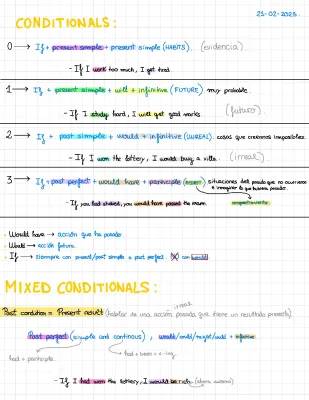 21-02-2025.
CONDITIONALS:
0 → If + present simple + present simple (HABITS). (evidencia)
- If I work too much, I get tired
1 → If + present simple + will + infinitive (FUTURE) muy probable.
- If I study hard, I will get good marks (futuro)
2 → If + past simple + would + infinitive (UNREAL). cosas que creemos imposibles.
- If I won the lottery, I would buy a villa. (irreal)
3 → If + past perfect + would have + participle situaciones del pasado que no ocurrieron
e imaginar lo que hubiera pasado.
- If you had studied, you would have passed the exam.
· Would have → acción que ha pasado
· Would → acción futura.
· If → Siempre con present/past simple o past perfect. NO con would
MIXED CONDITIONALS:
Past condition = Present result (hablar de una acción pasada que tiene un resultado presente)
irreal
Past perfect (simple and continous), would/could/might/could +
had + participle. had + been + v-ing.
- If I had won the lottery, I would be rich. (ahora mismo)